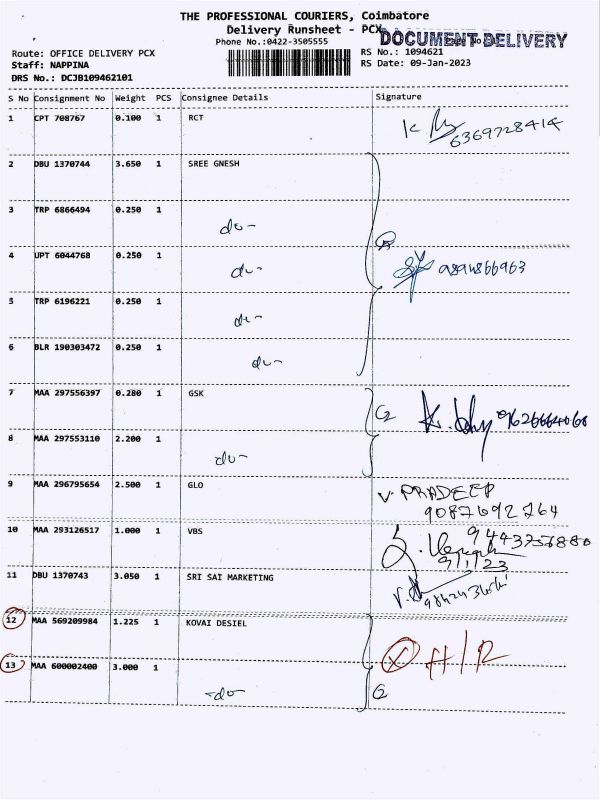 THE PROFESSIONAL COURIERS, Coimbatore
Delivery Runsheet - PCX
DOCUMENT DELIVERY
Phone No.:0422-3505555
Route: OFFICE DELIVERY PCX
RS No.: 1094621
Staff: NAPPINA
RS Date: 09-Jan-2023
DRS No.: DCJB109462101
S No Consignment No Weight PCS Consignee Details Signature
1 CPT 708767 0.100 1 RCT
6369728414
2 DBU 1370744 3.650 1 SREE GNESH
3 TRP 6866494 0.250 1
do-
4 UPT 6044768 0.250 1
do- 9894866963
5 TRP 6196221 0.250 1
do-
6 BLR 190303472 0.250 1
do-
7 MAA 297556397 0.280 1 GSK
8 MAA 297553110 2.200 1
do-
9 MAA 296795654 2.500 1 GLO
V. PRADEEP
9087692764
10 MAA 293126517 1.000 1 VBS
9/1/23
11 DBU 1370743 3.050 1 SRI SAI MARKETING
12 MAA 569209984 1.225 1 KOVAI DESIEL
13 MAA 600002400 3.000 1
-do-